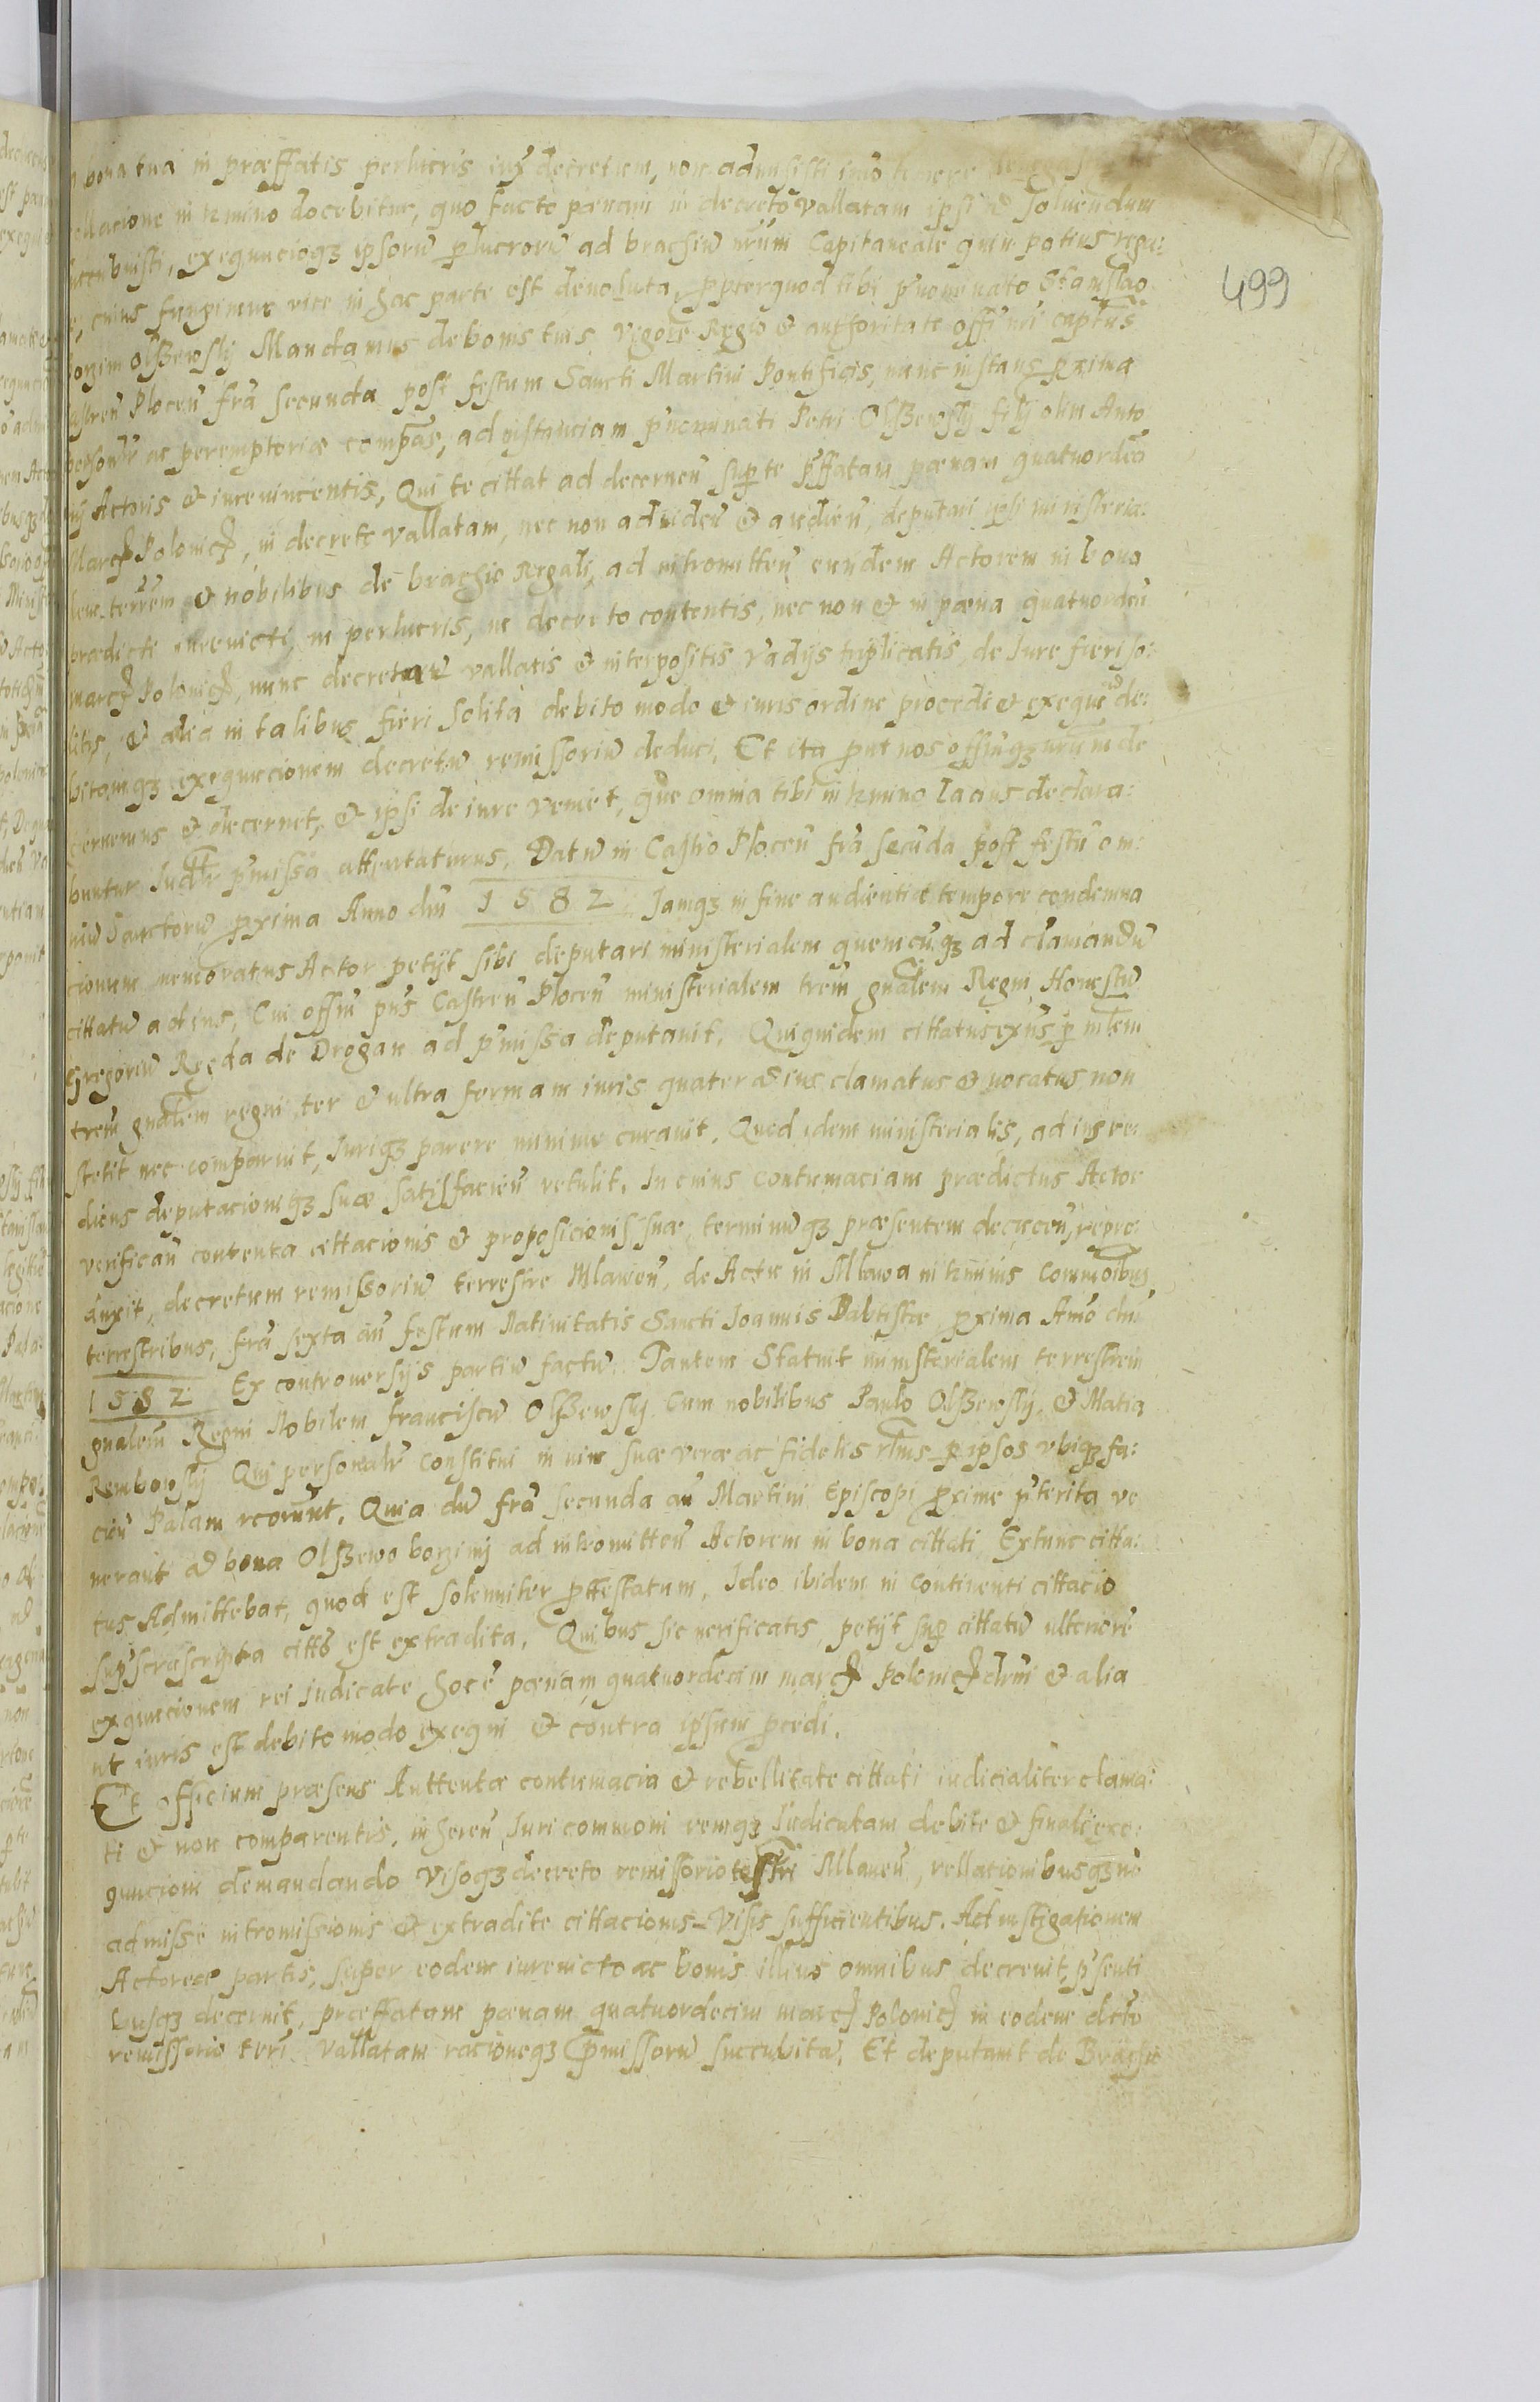 bona tua in præffatis perlucris iux decretum, non admisisti imo tenere
ellacione in termino docebitur, quo facto pænam in decreto vallatam ipsi soluendum
ucubuisti, exequuciogz ipsorū perlucrorū ad brachiū nrūm Capitaneale quin potius rega:
cuius fungimur vice in hac parte est deuoluta, propterquod tibi prænominato Stanislao
borzim Olszewsky Mandamus de bonis tuis vigore Regio & authoritate offi nri captūs
astren Plocen fra secunda post festum Sancti Martini Pontificis, nunc instans proxima
personalr ac peremptoriæ compas, ad instanciam prænominati Petri Olszewsky filij olim Anto
nij Actoris & iureuincentis, Qui te cittat ad decernen super te præffatam pænam quatuordeci
Marcz Polonicz, in decreto vallatam, nec non ad viden & audien, deputari ipsi ministeria:
lem terrem & nobilibus de brachio Regali, ad intromitten eundem Actorem in bona
prædicti iureuicti, in perlucris, in decreto contentis, nec non & in pæna quatuordeci
marcz Polonicz, nunc decretū vallatis & interpositis vadijs triplicatis, de Iure fieri so:
litis, & alia in talibus fieri solita debito modo & iuris ordine procedi & exequi de:
bitamgz exequucionem decretū remissoriū deduci. Et ita prout nos offiūgz nrum de
cernemus & decernet, & ipsi de iure veniet, que omnia tibi in termino lacius declara:
buntur Iudr præmissa attentaturus. Datū in Castro Plocen fra secūda post festū om:
niū Sanctorū proxima Anno dni 1582 Iamgz in fine audientiæ tempore condemna
cionum memoratus Actor petijt sibi deputari ministerialem quemcūgz ad clamandū
cittatū ad ius, Cui offiū pns Castren Plocen ministerialem trem gnalem Regni Honestū
Gregoriū Reda de Drogan ad præmissa deputauit. Quiquidem cittatus exns per mlem
trem gnalem regni ter & ultra formam iuris quater ad ius clamatus & vocatus non
stetit nec comparuit, Iurigz parere minime curauit. Quod idem ministerialis, ad ius re:
diens deputacionigz suæ satisfacien retulit. In cuius contumaciam prædictus Actor
verifican contenta cittacionis & proposicionis suæ, terminūgz præsentem decucen, repro
duxit, decretum remissoriū terrestre Mlawen, de Actu in Mlawa in terminis commoibus
terrestribus, fra sexta an festum Natiuitatis Sancti Ioannis Babtistæ proxima Anno dni
1582 Ex controuersijs partiū factū. Tandem Statuit ministerialem terrestrem
gnalem Regni Nobilem franciscū Olszewsky cum nobilibus Paulo Olszewsky, & Matia
Rembowsky Qui personalr constituti in vim suæ veræ ac fidelis rlnis per ipsos vbigz fa:
cien Palam recorunt. Quia dū fra secunda an Martini Episcopi proxime præterita ve
nerant ad bona Olszewo borzimy ad intromitten Actorem in bona cittati Extunc citta:
tus Admittebat, quod est solenniter protestatum, Ideo ibidem in continenti cittacio
suprascripta citto est extradita. Quibus sic verificatis, petijt super cittatū ulteriore
exequucionem rei iudicate hoc e pænam quatuordecim marcz Polonicz dnū & alia
ut iuris est debito modo exequi & contra ipsum procedi.
Et officium præsens Auttentæ contumacia & rebellitate cittati iudicialiter clama:
ti & non comparentis, inheren Iuri communi remgz Iudicatam debite & finali exe:
quucioni demandando visogz decreto remissorio terri Mlauen, rellacionibusgz no
admisse intromissionis & extradite cittacionis visis sufficientibus. Ad instigationem
Actoreæ partis, super eodem iureuicto ac bonis illius omnibus decreuit, præsenti
busgz decernit, præffatam pænam quatuordecim marcz Polonicz in eodem dcto
remissorio terri vallatam racionegz præmissorū succubita. Et deputauit de Brachio
499